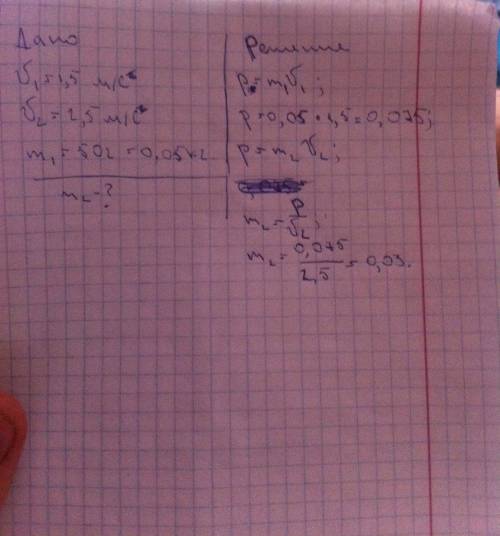 Дано
υ₁ = 1,5 м/с
υ₂ = 2,5 м/с
m₁ = 50г = 0,05кг
m₂ - ?
Решение
p = m₁υ₁;
p = 0,05 * 1,5 = 0,075;
p = m₂υ₂;
m₂ = p/υ₂;
m₂ = 0,075/2,5 = 0,03.